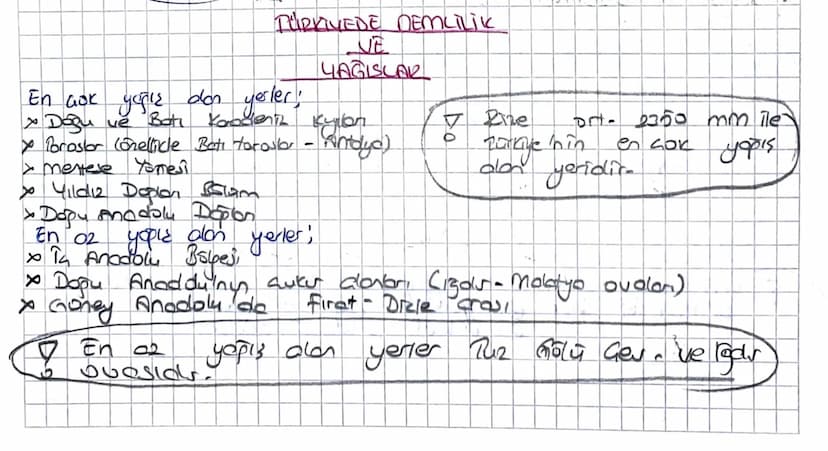 TÜRKİYEDE NEMLİLİK
VE
YAĞIŞLAR
En çok yağış alan yerler;
x Doğu ve Batı Karadeniz Kıyıları
x Toroslar (Özellikle Batı toroslar - Antalya)
x Menteşe Yöresi
x Yıldız Dağları Bölüm
x Doğu Anadolu Dağları
! Rize ort. 2350 mm ile
Türkiye'nin en çok yağış
alan yeridir.
En az yağış alan yerler;
x İç Anadolu Bölgesi
x Doğu Anadolu'nun çukur alanları (Iğdır - Malatya ovaları)
x Güney Anadolu'da Fırat - Dicle arası
! En az yağış alan yerler Tuz Gölü Çev. ve Iğdır
ovasıdır.